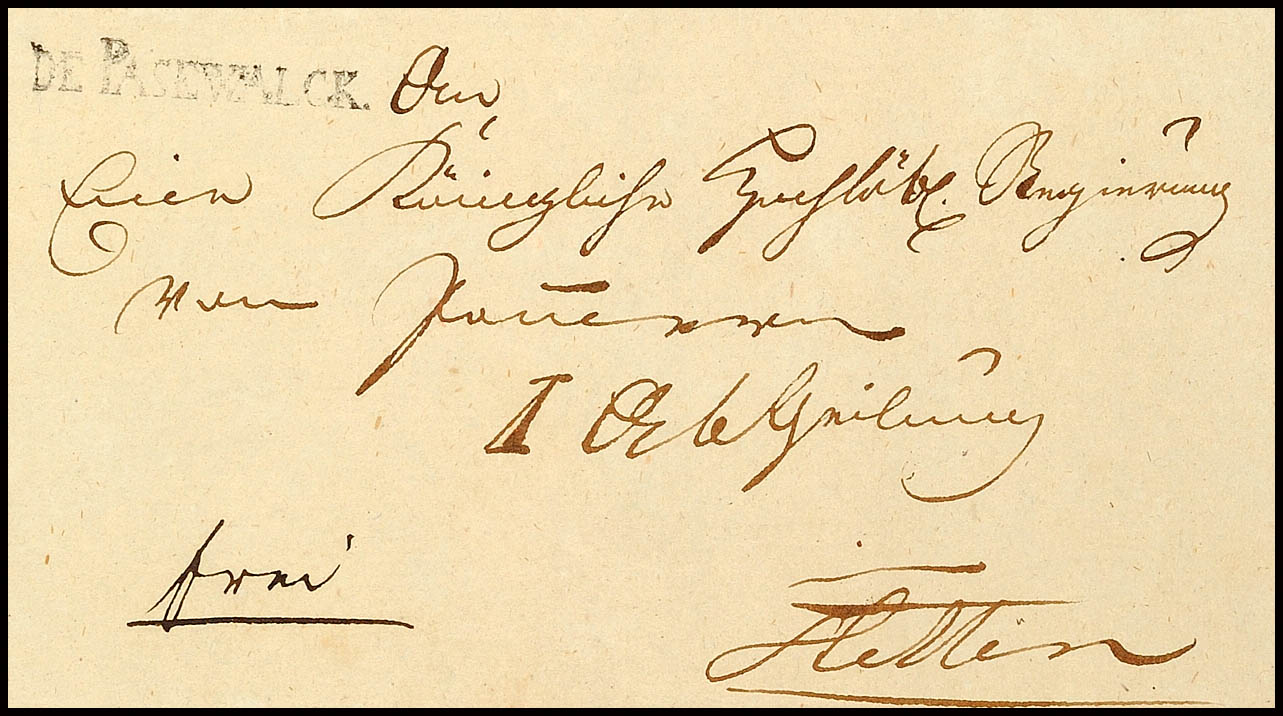 DE PASEWALCK. An
Eine Königliche Hochlöbl. Regierung
von Pom̄ern
I Abtheilung
frei
Stettin